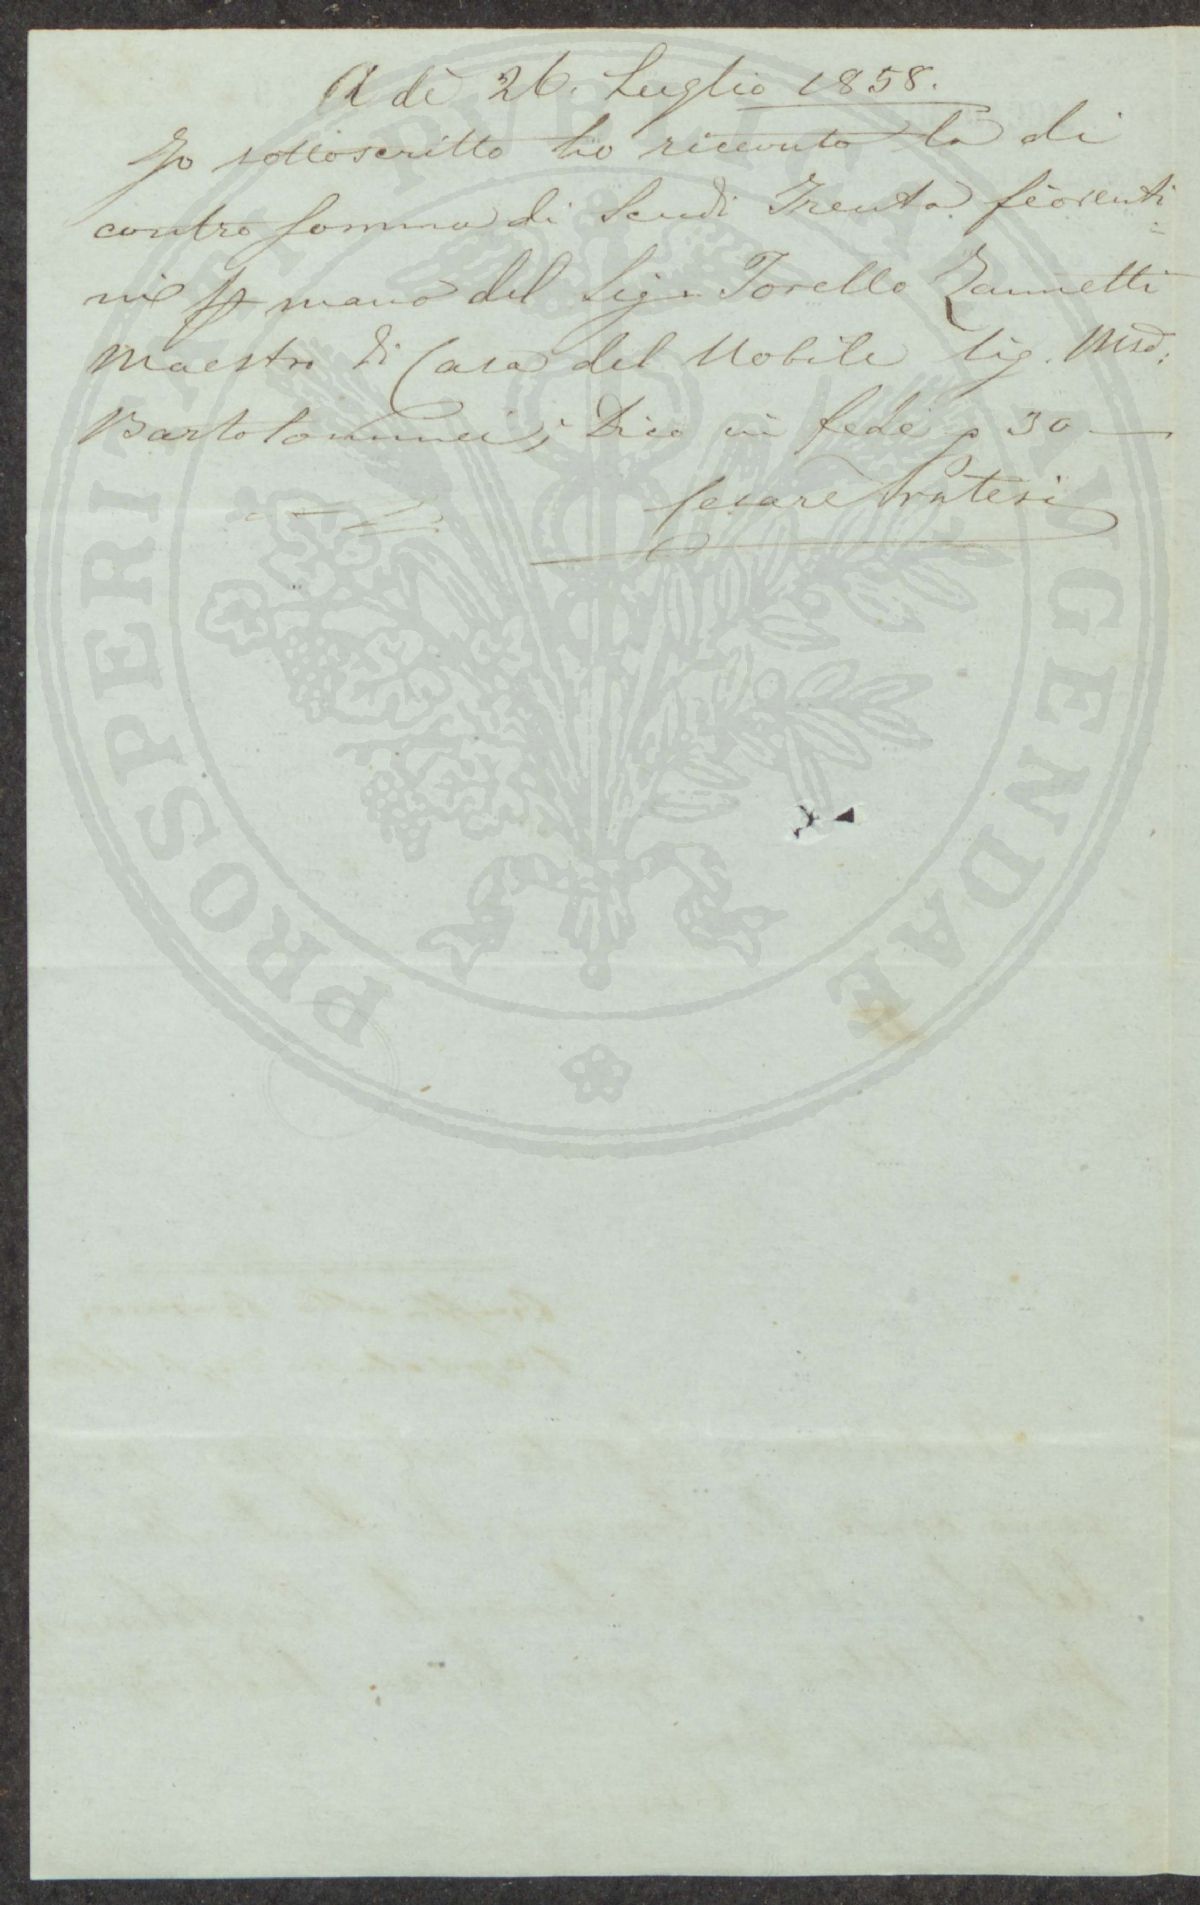 A dì 26. Luglio 1858.
Io sottoscritto ho ricevuto la di
contro somma di Scudi Trenta fiorenti
=
ni p mano del Sig.r Torello Zannetti
Maestro di Casa del Nobile Sig.
Bartolommei; Dico in fede 30 —
Cesare Pratesi
PROSPERITATI PVBLICAE AVGENDAE